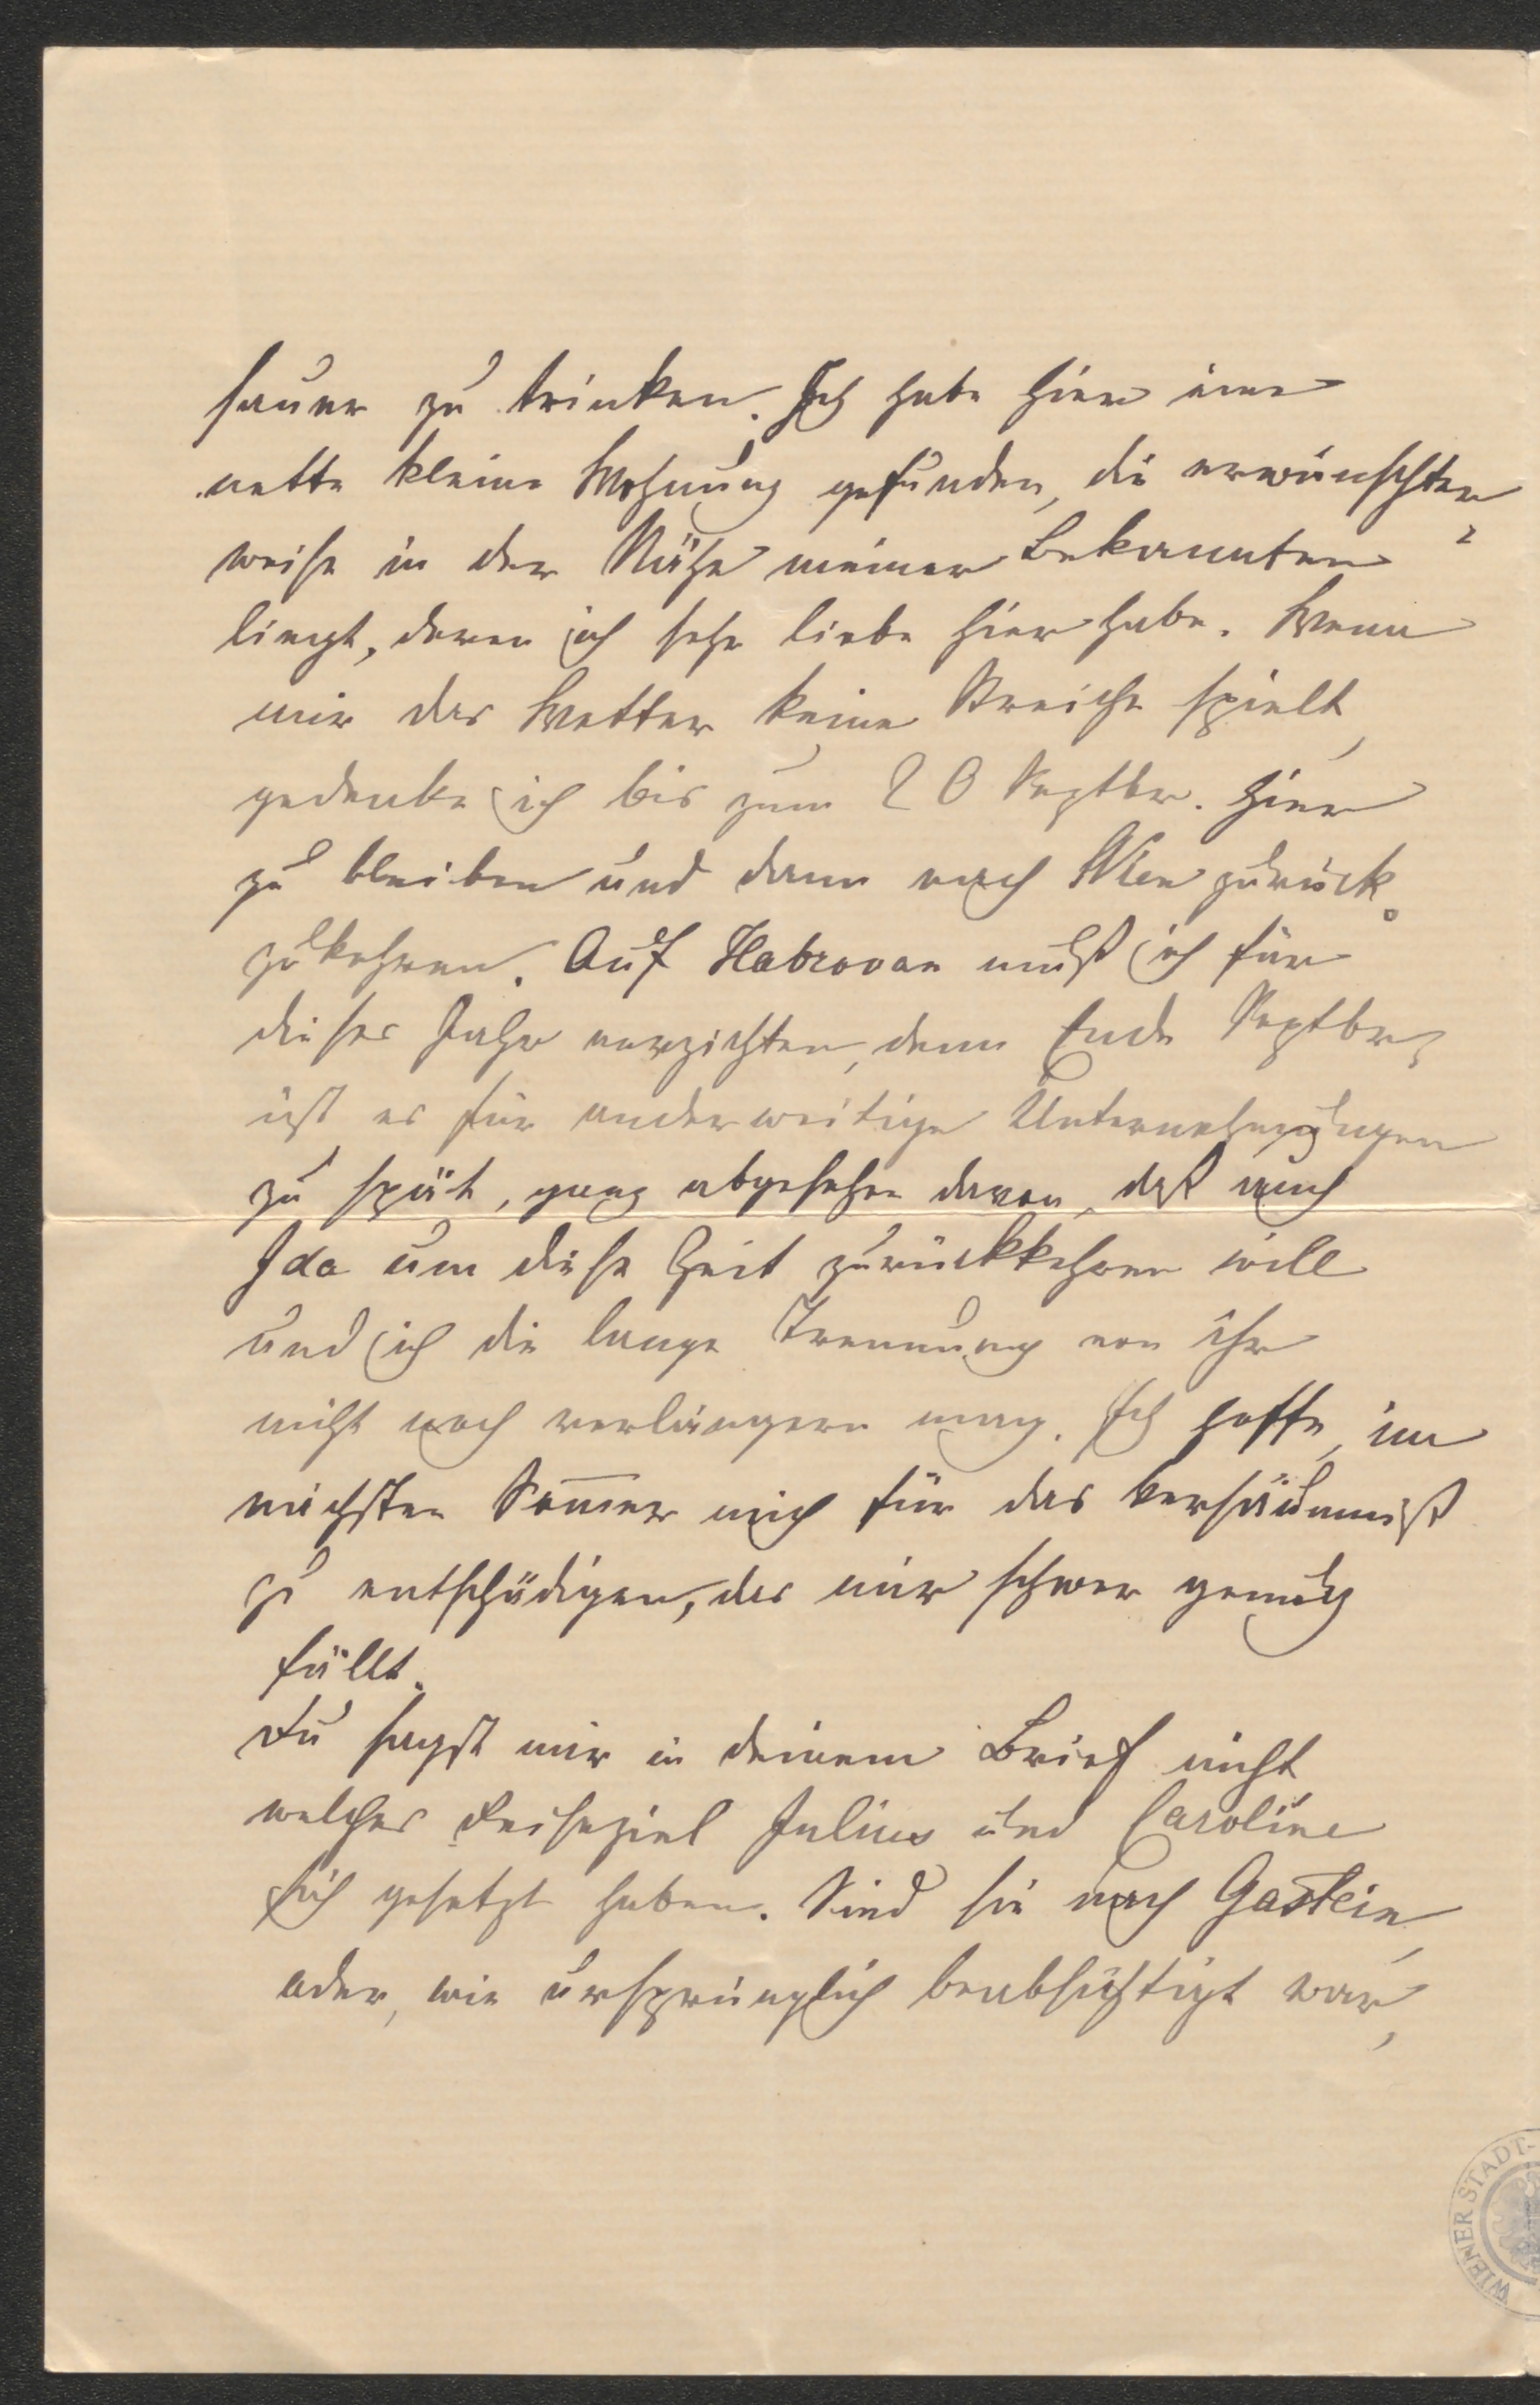 sauer zu trinken. Ich habe hier eine
nette kleine Wohnung gefunden, die erwünschter
weise in der Nähe meiner Bekannten
liegt, deren ich sehr liebe hier habe. Wenn
mir das Wetter keine Streiche spielt,
gedenke ich bis zum 20 Septbr. hier
zu bleiben und dann nach Wien zurück
zukehren. Auf Habrovan muß ich für
dieses Jahr verzichten, denn Ende Septbr
ist es für anderweitige Unternehmungen
zu spät, ganz abgesehen davon, daß auch
Ida um diese Zeit zurückkehren will
und ich die lange Trennung von ihr
nicht noch verlängern mag. Ich hoffe, im
nächsten Som̅er mich für das Versäumniß
zu entschädigen, das mir schwer genug
fällt.
Du sagst mir in deinem Brief nicht
welches Reiseziel Julius und Caroline
sich gesetzt haben. Sind sie nach Gastein,
oder, wie ursprünglich beabsichtigt war,
WIENER STADT-